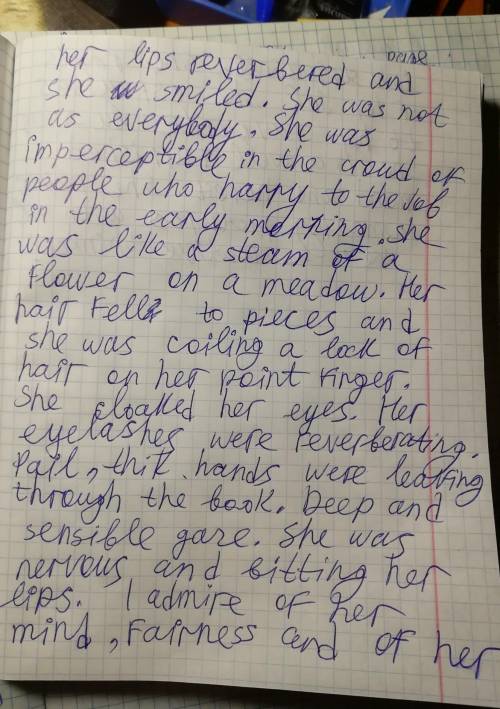 her lips reverbered and
she smiled. She was not
as everybody. She was
imperceptible in the crowd of
people who happy to the job
in the early morning. She
was like a steam of a
flower on a meadow. Her
hair fell to pieces and
she was coiling a lock of
hair on her point finger.
She cloaked her eyes. Her
eyelashes were reverberating.
Pail, thik hands were leafing
through the book. Deep and
sensible gaze. She was
nervous and bitting her
lips. I admire of her
mind, Fairness and of her